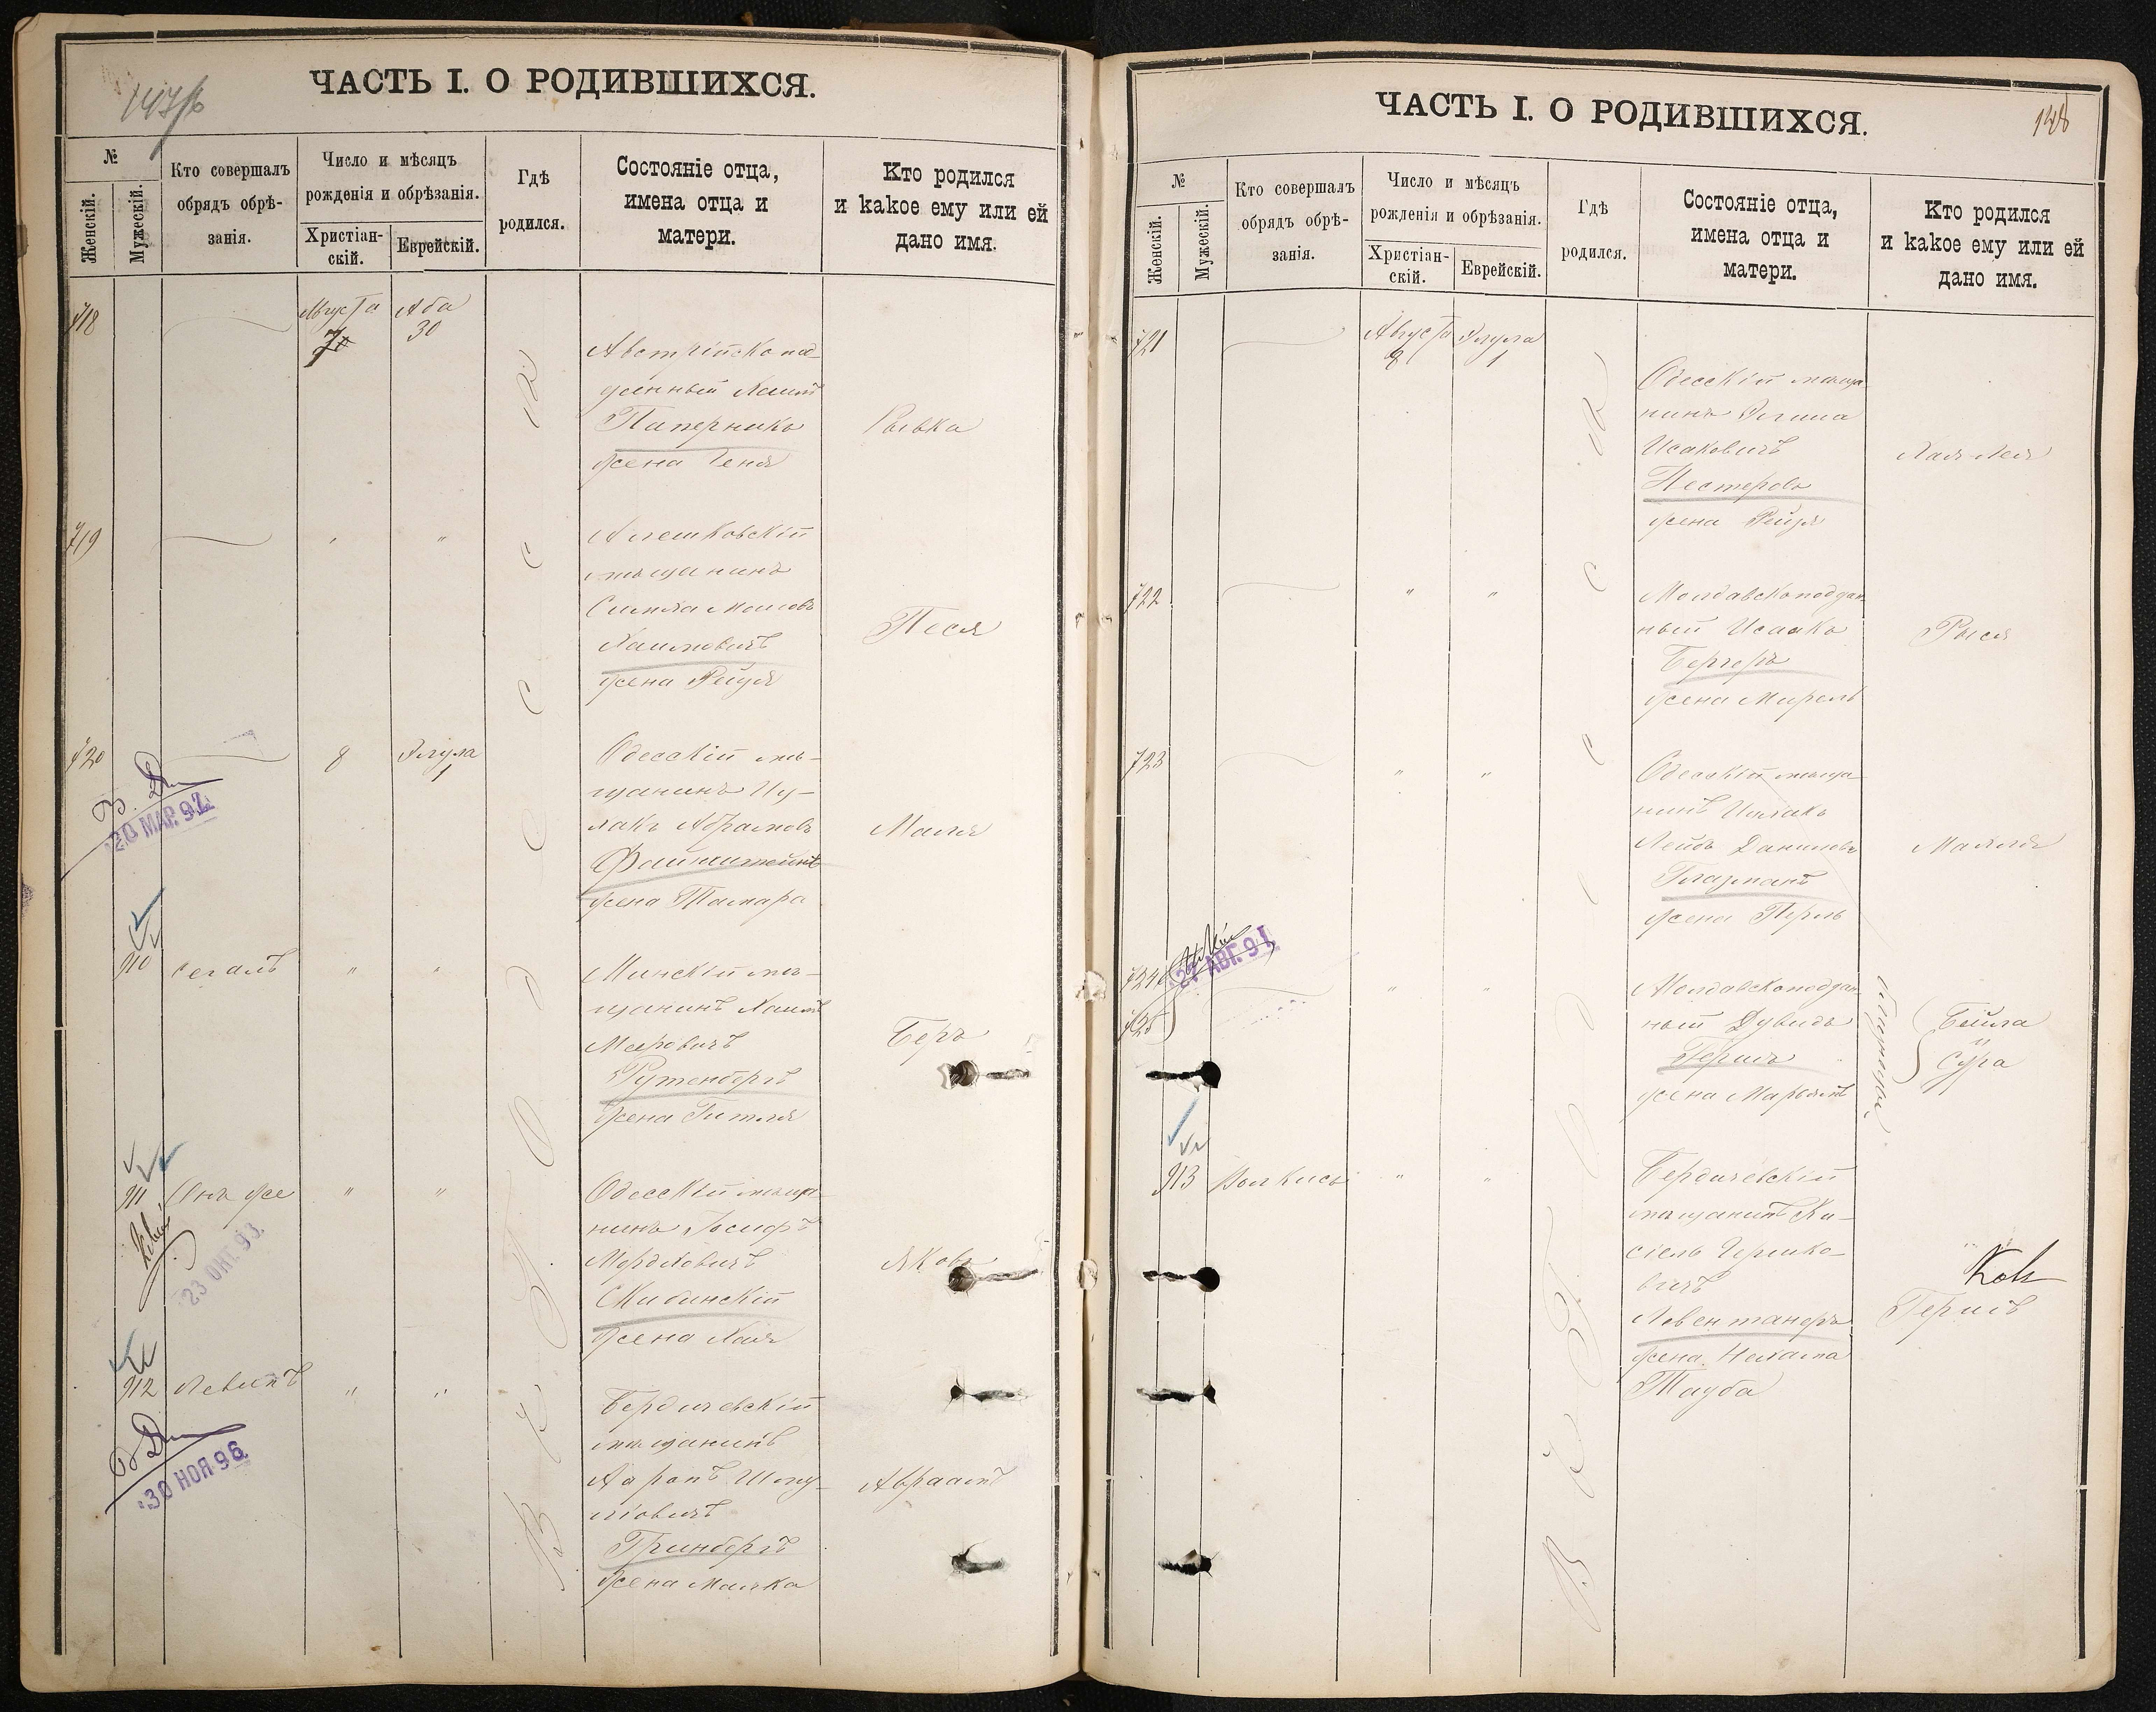 ЧАСТЬ I. О РОДИВШИХСЯ.
№
Женскій.
Мужескій.
Кто совершалъ
обрядъ обрѣ-
занія.
Число и мѣсяцъ
рожденія и обрѣзанія.
Христіан-
скій.
Еврейскій.
Гдѣ
родился.
Состояніе отца,
имена отца и
матери.
Кто родился
и какое ему или ей
дано имя.
718
Августа
7
Аба
30
Австрійскопод
данный Хаимъ
Паперникъ
жена Геня
Рывка
719
" "
Алешковскій
мѣщанинъ
Симха Моисеевъ
Хаимовичъ
жена Рейзя
Песя
720
8
Элула
1
Одесскій мѣ-
щанинъ Иц-
хакъ Абрамовъ
Файнштейнъ
жена Тамара
Маля
20 МАР. 97.
910
Сегалъ
" "
Минскій мѣ-
щанинъ Хаимъ
Мееровичъ
Рутенбергъ
жена Гитля
Беръ
911
Онъ же
" "
Одесскій мѣща-
нинъ Іосифъ
Мордковичъ
Скибинскій
жена Хая
Яковъ
23 ОКТ. 93.
912
Левитъ
" "
Бердичевскій
мѣщанинъ
Ааронъ Шму-
ліовичъ
Гринбергъ
жена Малка
Авраамъ
30 НОЯ 96.
Въ Одессѣ
ЧАСТЬ I. О РОДИВШИХСЯ.
148
№
Женскій.
Мужескій.
Кто совершалъ
обрядъ обрѣ-
занія.
Число и мѣсяцъ
рожденія и обрѣзанія.
Христіан-
скій.
Еврейскій.
Гдѣ
родился.
Состояніе отца,
имена отца и
матери.
Кто родился
и какое ему или ей
дано имя.
721
Августа
8
Элула
1
Одесскій мѣща
нинъ
Исаковичъ
Нестеровъ
жена Рейзя
Хая-Лея
722
" "
Молдавскоподдан
ный Исаакъ
Бергеръ
жена Мирель
Рыся
723
" "
Одесскій мѣща
нинъ Ицхакъ
Лейбъ Даниловъ
Глазманъ
жена Перль
Малля
724
725
27 АВГ. 91.
" "
Молдавскоподдан
ный Дувидъ
Гершъ
жена Марьямъ
близнецы
Бейла
и
Сура
913
Волкисъ
" "
Бердичевскій
мѣщанинъ Ки-
сіель Гершко-
вичъ
Левентанеръ
жена Нехама
Тауба
Гершъ